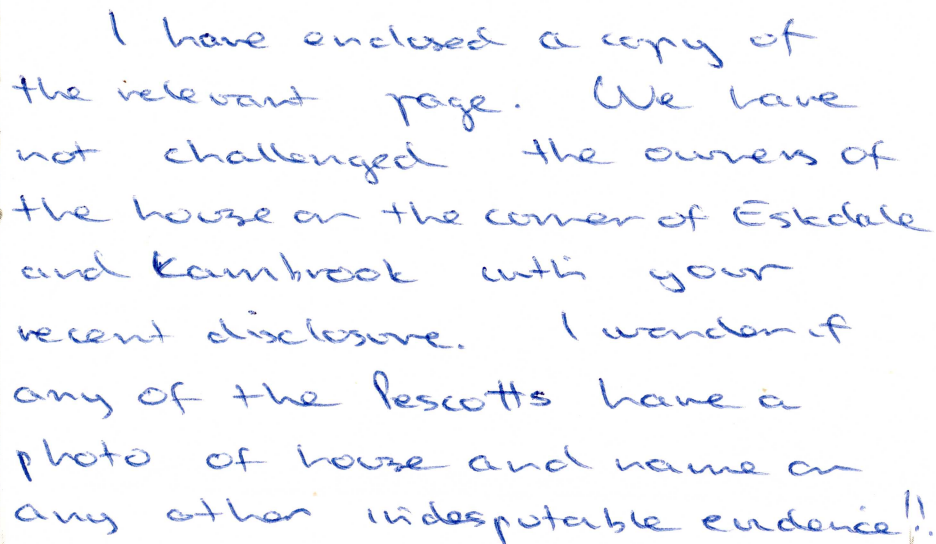 I have enclosed a copy of
the relevant page. We have
not challenged the owners of
the house on the corner of Eskdale
and Kambrook with your
recent disclosure. I wonder if
any of the Pescotts have a
photo of house and name or
any other indesputable evidence!!